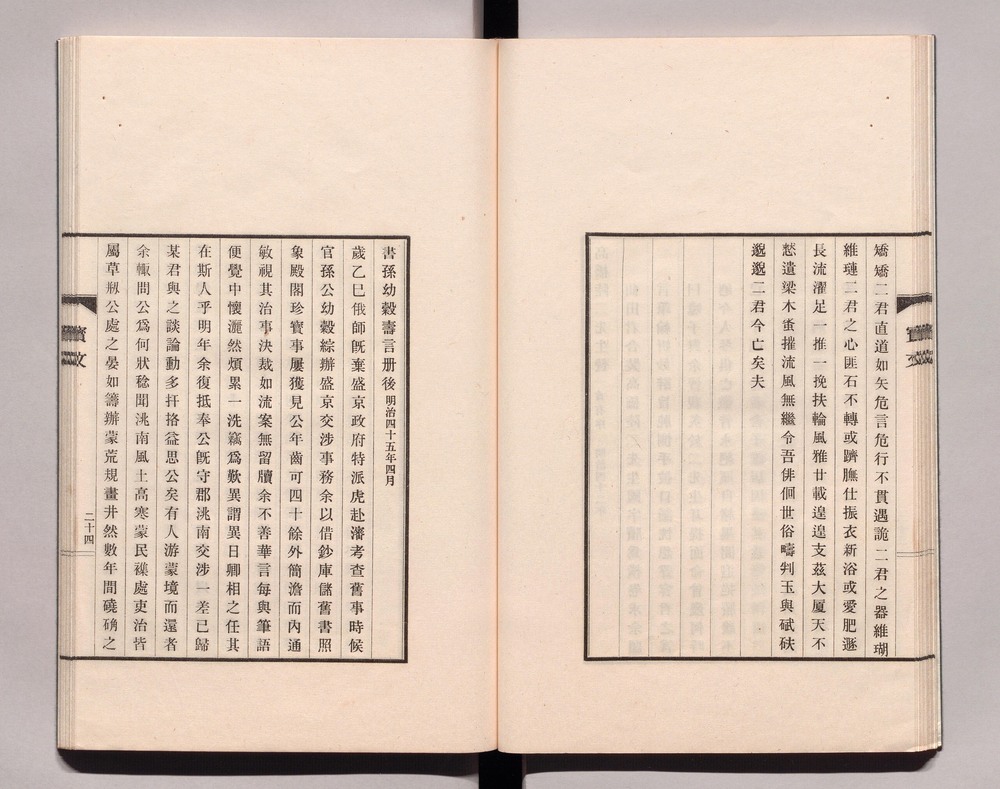 矯矯二君直道如矢危言危行不貫遇詭二君之器維瑚
維璉二君之心匪石不轉或躋膴仕振衣新浴或愛肥遯
長流濯足一推一挽扶輪風雅廿載遑遑支茲大厦天不
憖遺梁木蚩摧流風無繼令吾俳佪世俗疇判玉與碔砆
邈邈二君今亡矣夫
書孫幼穀壽言册後明治四十五年四月
歲乙巳俄師旣棄盛京政府特派虎赴瀋考查舊事時候
官孫公幼穀綜辦盛京交涉事務余以借鈔庫儲舊書照
象殿閣珍寶事屢獲見公年齒可四十餘外簡澹而內通
敏視其治事決裁如流案無留牘余不善華言每與筆語
便覺中懷灑然煩累一洗竊爲歎異謂異日卿相之任其
在斯人乎明年余復抵奉公旣守郡洮南交涉一差已歸
某君與之談論動多扞挌益思公矣有人游蒙境而還者
余輙問公爲何狀稔聞洮南風土高寒蒙民襍處吏治皆
屬草剏公處之晏如籌辦蒙荒規畫井然數年間磽确之
二十四